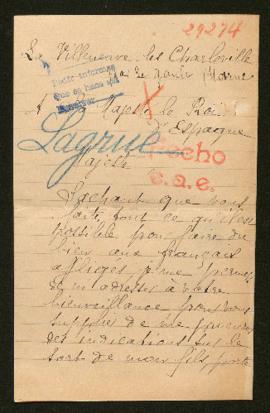 29274
La Villeneuve les Charleville
par  Marne
A Sa Majesté le Roi
d'Espagne
Lagrue
Hecho
e.a.e.
Majesté
Sachant que vous
faites tout ce qu'il est
possible pour faire du
bien aux français
affligés je me permets
de m adresser à votre
bienveillance pour vous
supplier de me procurer
des indications sur le
sort de mon fils, porté